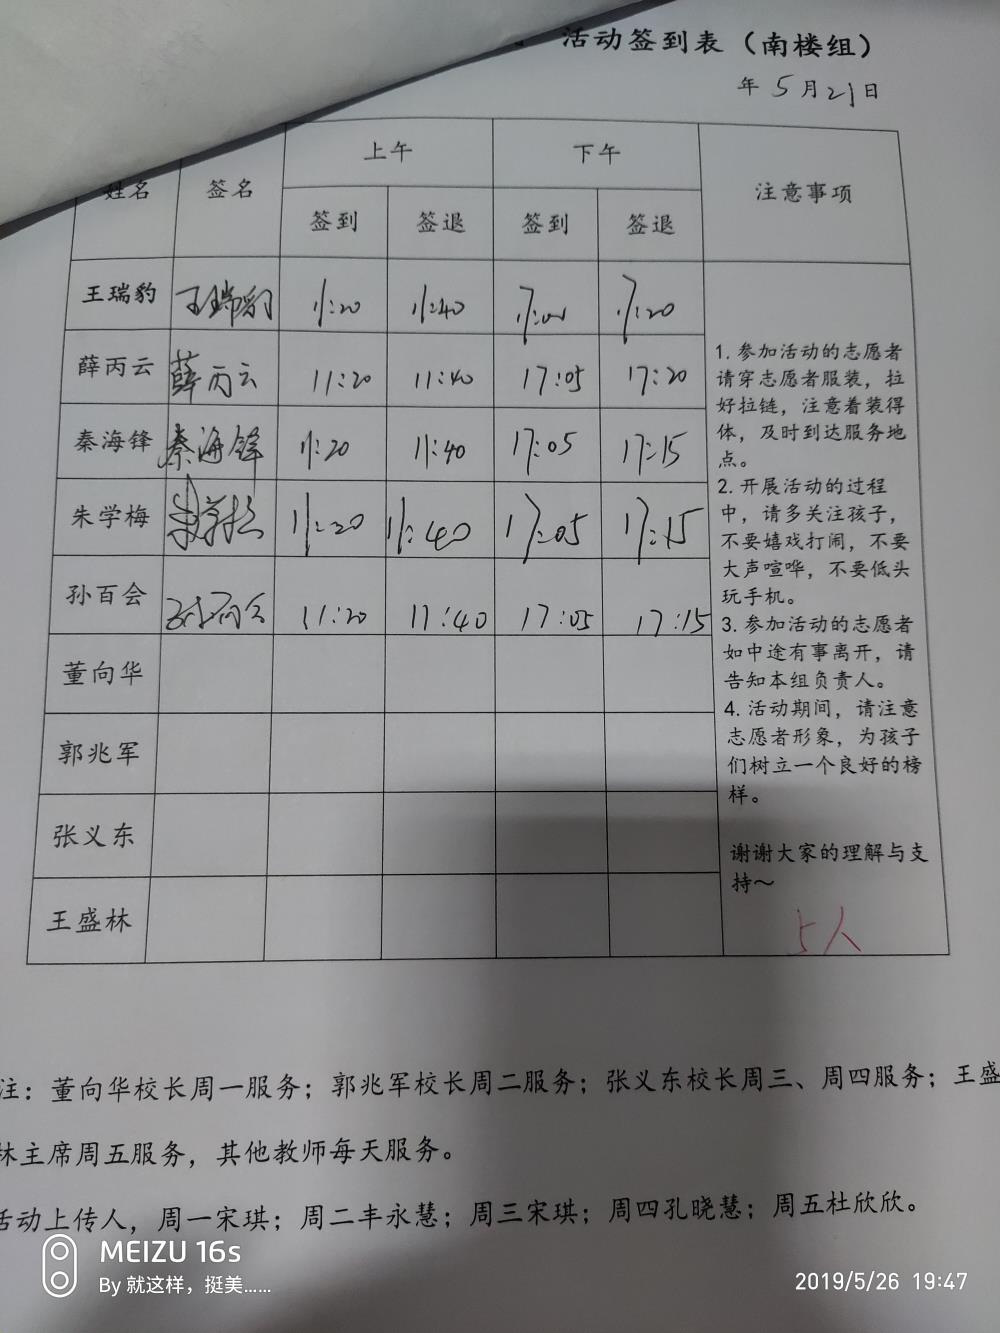 活动签到表（南楼组）
年5月21日
姓名 签名 上午 下午 注意事项
签到 签退 签到 签退
王瑞豹 王瑞豹 11:20 11:40 17:20
薛丙云 薛丙云 11:20 11:40 17:05 17:20
秦海锋 秦海锋 11:20 11:40 17:05 17:15
朱学梅 11:20 11:40 17:05 17:15
孙百会 孙百会 11:20 11:40 17:05 17:15
董向华
郭兆军
张义东
王盛林
1. 参加活动的志愿者
请穿志愿者服装，拉
好拉链，注意着装得
体，及时到达服务地
点。
2. 开展活动的过程
中，请多关注孩子，
不要嬉戏打闹，不要
大声喧哗，不要低头
玩手机。
3. 参加活动的志愿者
如中途有事离开，请
告知本组负责人。
4. 活动期间，请注意
志愿者形象，为孩子
们树立一个良好的榜
样。
谢谢大家的理解与支
持～
5人
注：董向华校长周一服务；郭兆军校长周二服务；张义东校长周三、周四服务；王盛
林主席周五服务，其他教师每天服务。
活动上传人，周一宋琪；周二丰永慧；周三宋琪；周四孔晓慧；周五杜欣欣。
MEIZU 16s
By 就这样，挺美......
2019/5/26 19:47